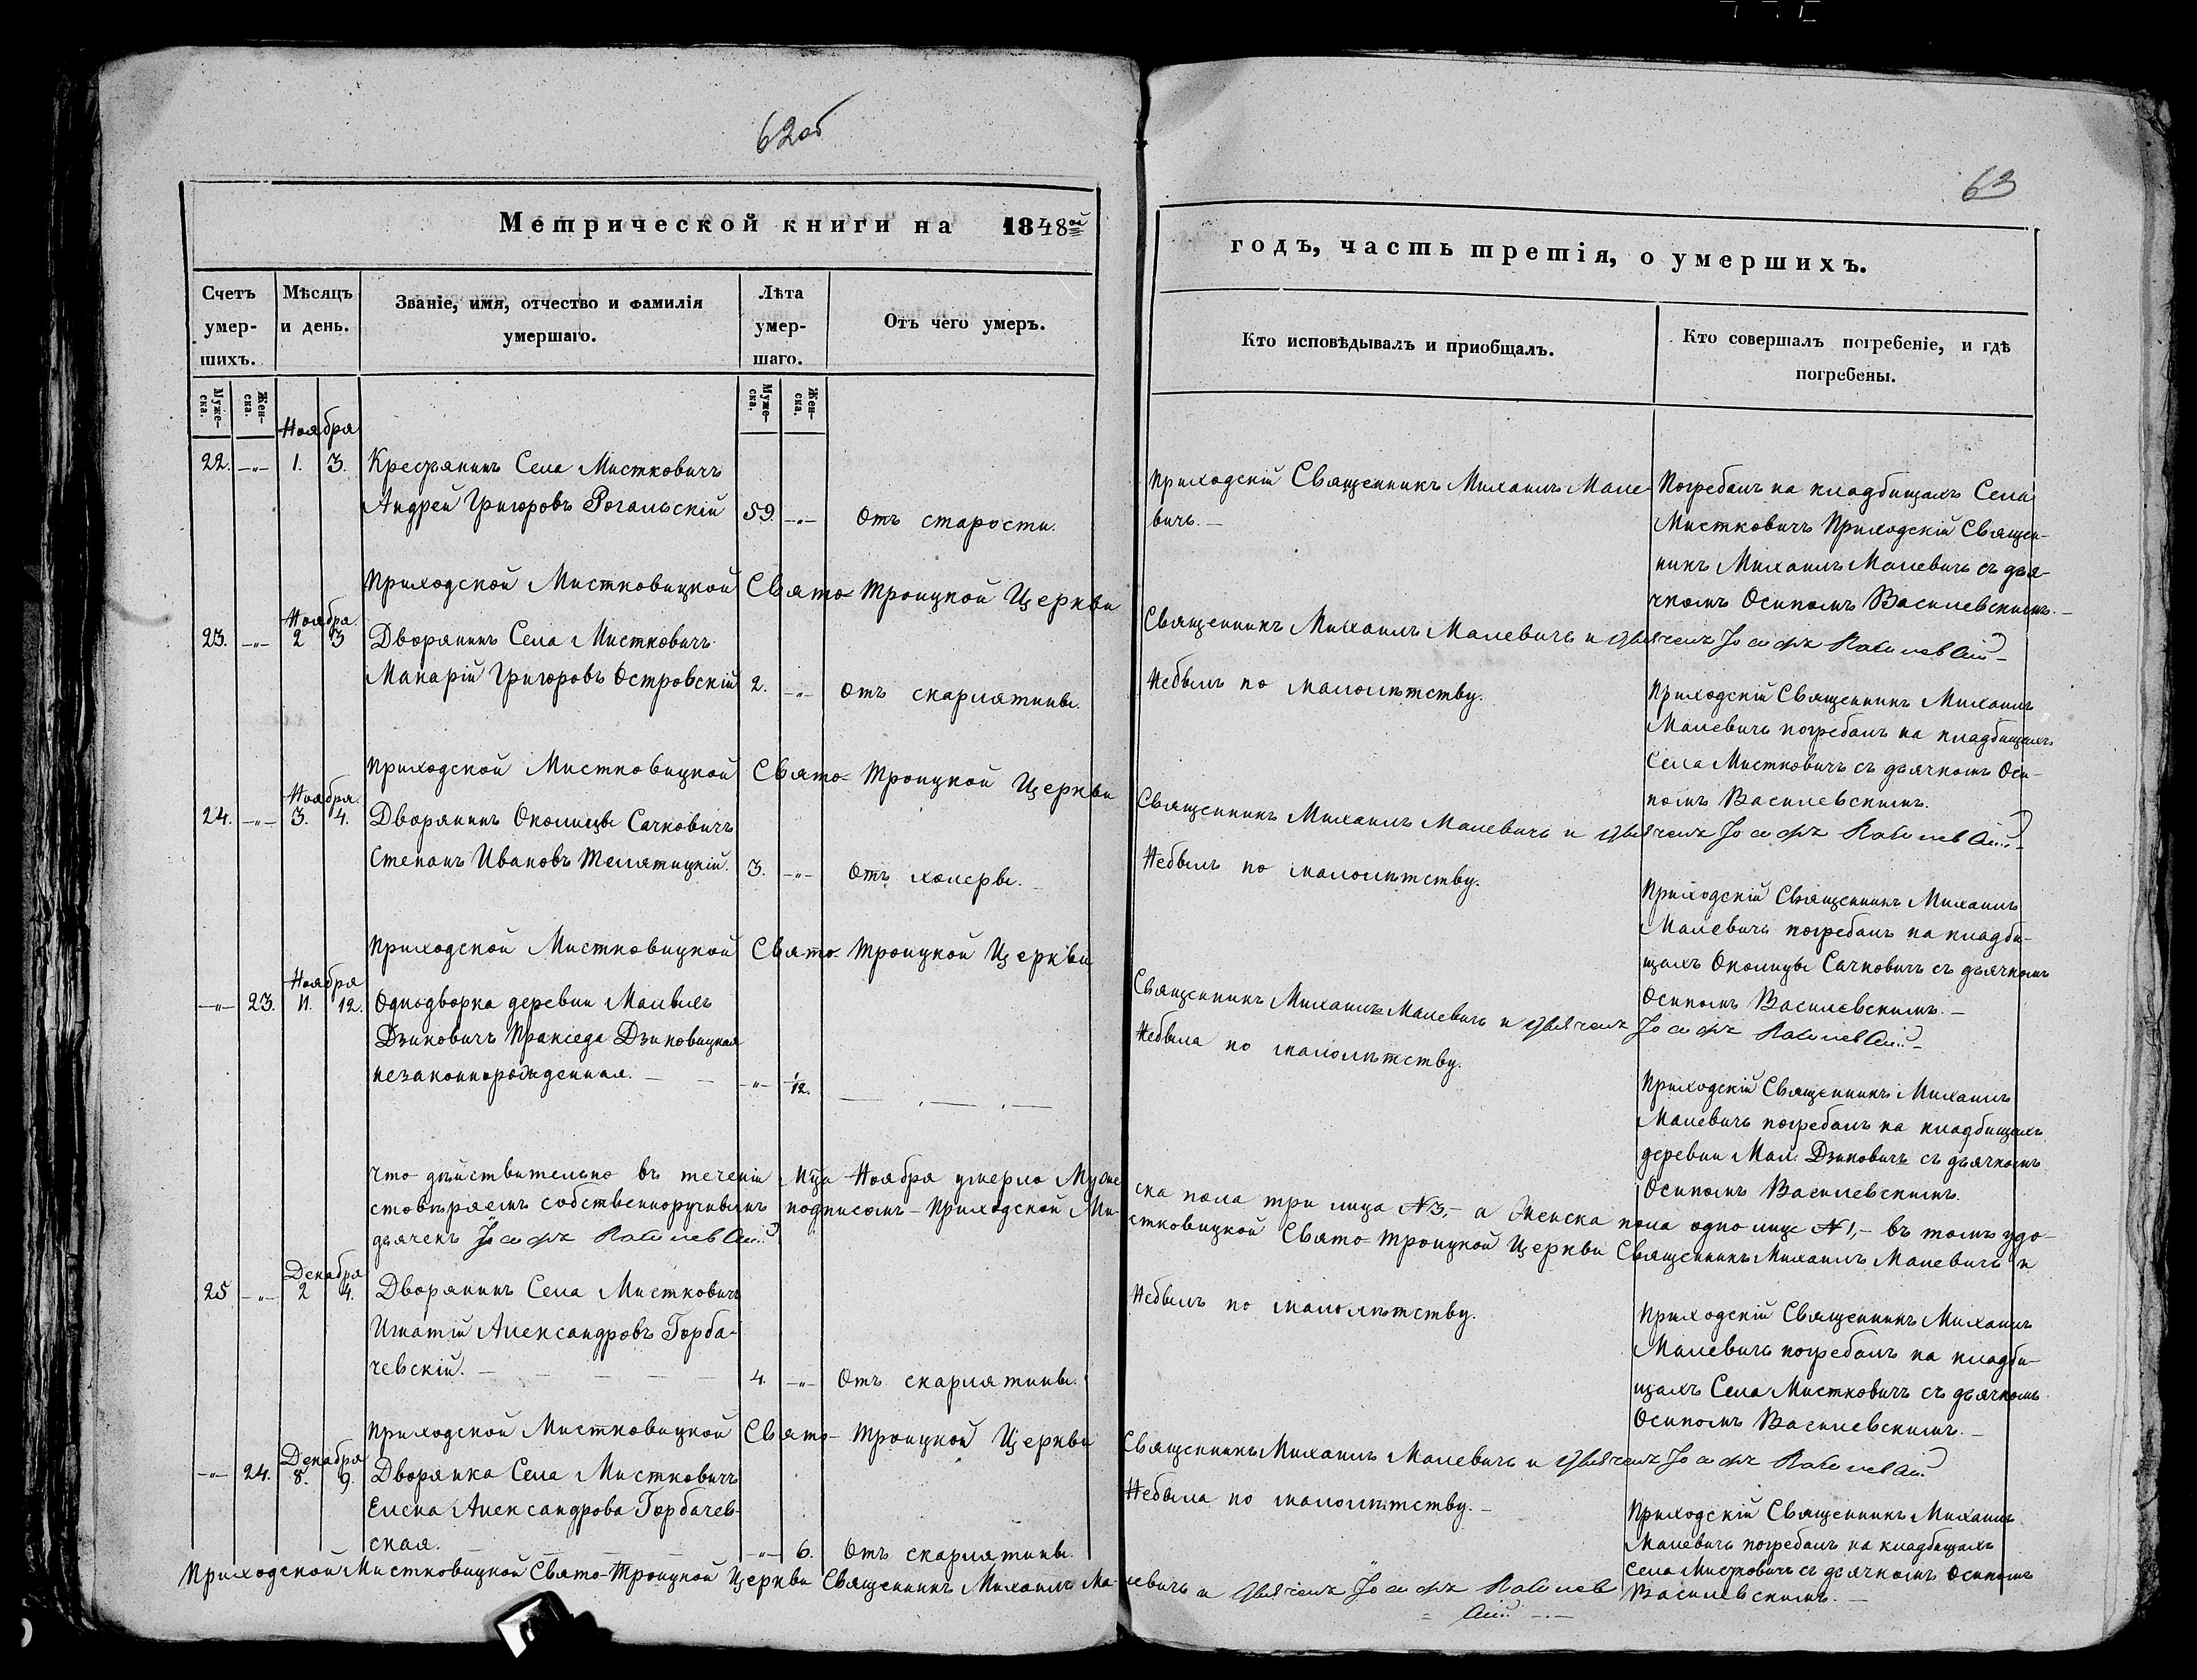 62об
Метрической книги на 1848ой
Счетъ умер-шихъ.
Мѣсяцъ и день.
Званіе, имя, отчество и фамилія умершаго.
Лѣта умер-шаго.
Отъ чего умеръ.
Муже-ска.
Жен-ска.
Муже-ска.
Жен-ска.
Ноября
22. —"— 1. 3. Крестьянинъ Села Мистковичъ
Андрей Григоровъ Рогальскій 59. —"— Отъ старости.
Приходской Мистковицкой Свято-Троицкой Церкви
Ноября.
23. —"— 2 3 Дворянинъ Села Мистковичъ
Макарій Григоровъ Островскій 2. —"— Отъ скарлятины.
Приходской Мистковицкой Свято-Троицкой Церкви
Ноября.
24. —"— 3. 4. Дворянинъ Околицы Сачковичъ
Степанъ Ивановъ Телятицкій. 3. —"— Отъ холеры.
Приходской Мистковицкой Свято-Троицкой Церкви
Ноября
—"— 23. 11. 12. Однодворка деревни Малыхъ
Дзиковичъ Пракседа Дзиковицкая
незаконнорожденная. — —"— 1/12.
Что дѣйствительно въ теченіи Мца Ноября умерло Муже
стовѣряемъ собственноручнымъ подписомъ - Приходской Ми-
дьячекъ Іосифъ Василевскій
Декабря
25 —"— 2 4. Дворянинъ Села Мистковичъ
Игнатій Александровъ Горба-
чевскій. — 4. —"— Отъ скарлятины.
Приходской Мистковицкой Свято-Троицкой Церкви
Декабря
—"— 24. 8. 9. Дворянка Села Мистковичъ
Елена Александрова Горбачев-
ская. —"— 6. Отъ скарлятины.
Приходской Мистковицкой Свято-Троицкой Церкви Священникъ Михаилъ Ма-
63
годъ, часть третія, о умершихъ.
Кто исповѣдывалъ и приобщалъ.
Кто совершалъ погребеніе, и гдѣ погребены.
Приходскій Священникъ Михаилъ Мале
вичъ. —
Погребалъ на кладбищахъ Села
Мистковичъ Приходскій Священ-
никъ Михаилъ Малевичъ съ дья-
чкомъ Осипомъ Василевскимъ. —
Священникъ Михаилъ Малевичъ и дьячекъ Іосифъ Василевскій —
Небылъ по малолѣтству.
Приходскій Священникъ Михаилъ
Малевичъ погребалъ на кладбищахъ
Села Мистковичъ съ дьячкомъ Оси-
помъ Василевскимъ.
Священникъ Михаилъ Малевичъ и дьячекъ Іосифъ Василевскій —
Небылъ по малолѣтству.
Приходскій Священникъ Михаилъ
Малевичъ погребалъ на кладби-
щахъ Околицы Сачковичъ съ дьячкомъ
Осипомъ Василевскимъ. —
Священникъ Михаилъ Малевичъ и дьячекъ Іосифъ Василевскій —
Небыла по малолѣтству.
Приходскій Священникъ Михаилъ
Малевичъ погребалъ на кладбищахъ
деревни Мал. Дзиковичъ съ дьячкомъ
Осипомъ Василевскимъ.
ска пола три лица №3, - а Женска пола одно лице №1, - въ томъ удо-
стковицкой Свято-Троицкой Церкви Священникъ Михаилъ Малевичъ и
Небылъ по малолѣтству.
Приходскій Священникъ Михаилъ
Малевичъ погребалъ на кладби-
щахъ Села Мистковичъ съ дьячкомъ
Осипомъ Василевскимъ. —
Священникъ Михаилъ Малевичъ и дьячекъ Іосифъ Василевскій
Небыла по малолѣтству. —
Приходскій Священникъ Михаилъ
Малевичъ погребалъ на кладбищахъ
Села Мистковичъ съ дьячкомъ Осипомъ
Василевскимъ. —
левичъ и дьячекъ Іосифъ Василев
= скій —